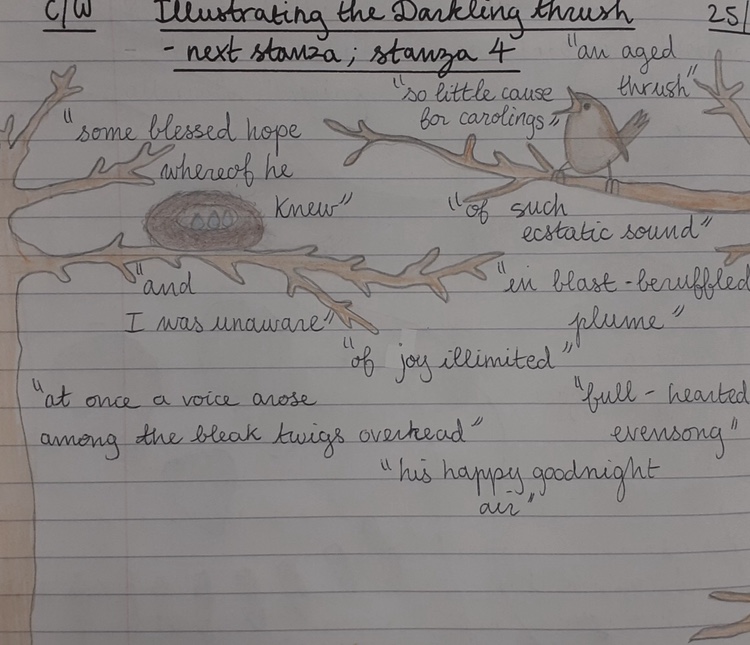 C/W Illustrating the Darkling thrush 25/
- next stanza; stanza 4
"an aged
thrush"
"so little cause
for carolings"
"some blessed hope
whereof he
knew"
"of such
ecstatic sound"
"and
I was unaware"
"in blast-beruffled
plume"
"of joy illimited"
"at once a voice arose
among the bleak twigs overhead"
"full-hearted
evensong"
"his happy goodnight
air"